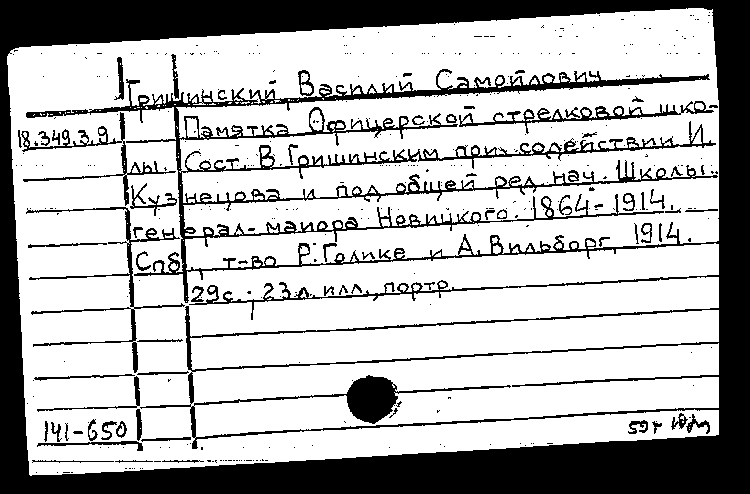 Гришинский, Василий Самойлович
18.349.3.9.
Памятка Офицерской стрелковой шко-
лы. Сост. В. Гришинским при содействии И.
Кузнецова и под общей ред. нач. Школы
генерал-майора Новицкого. 1864-1914.
Спб., т-во Р. Голике и А. Вильборг, 1914.
29с.; 23л. илл., портр.
141-650
59г